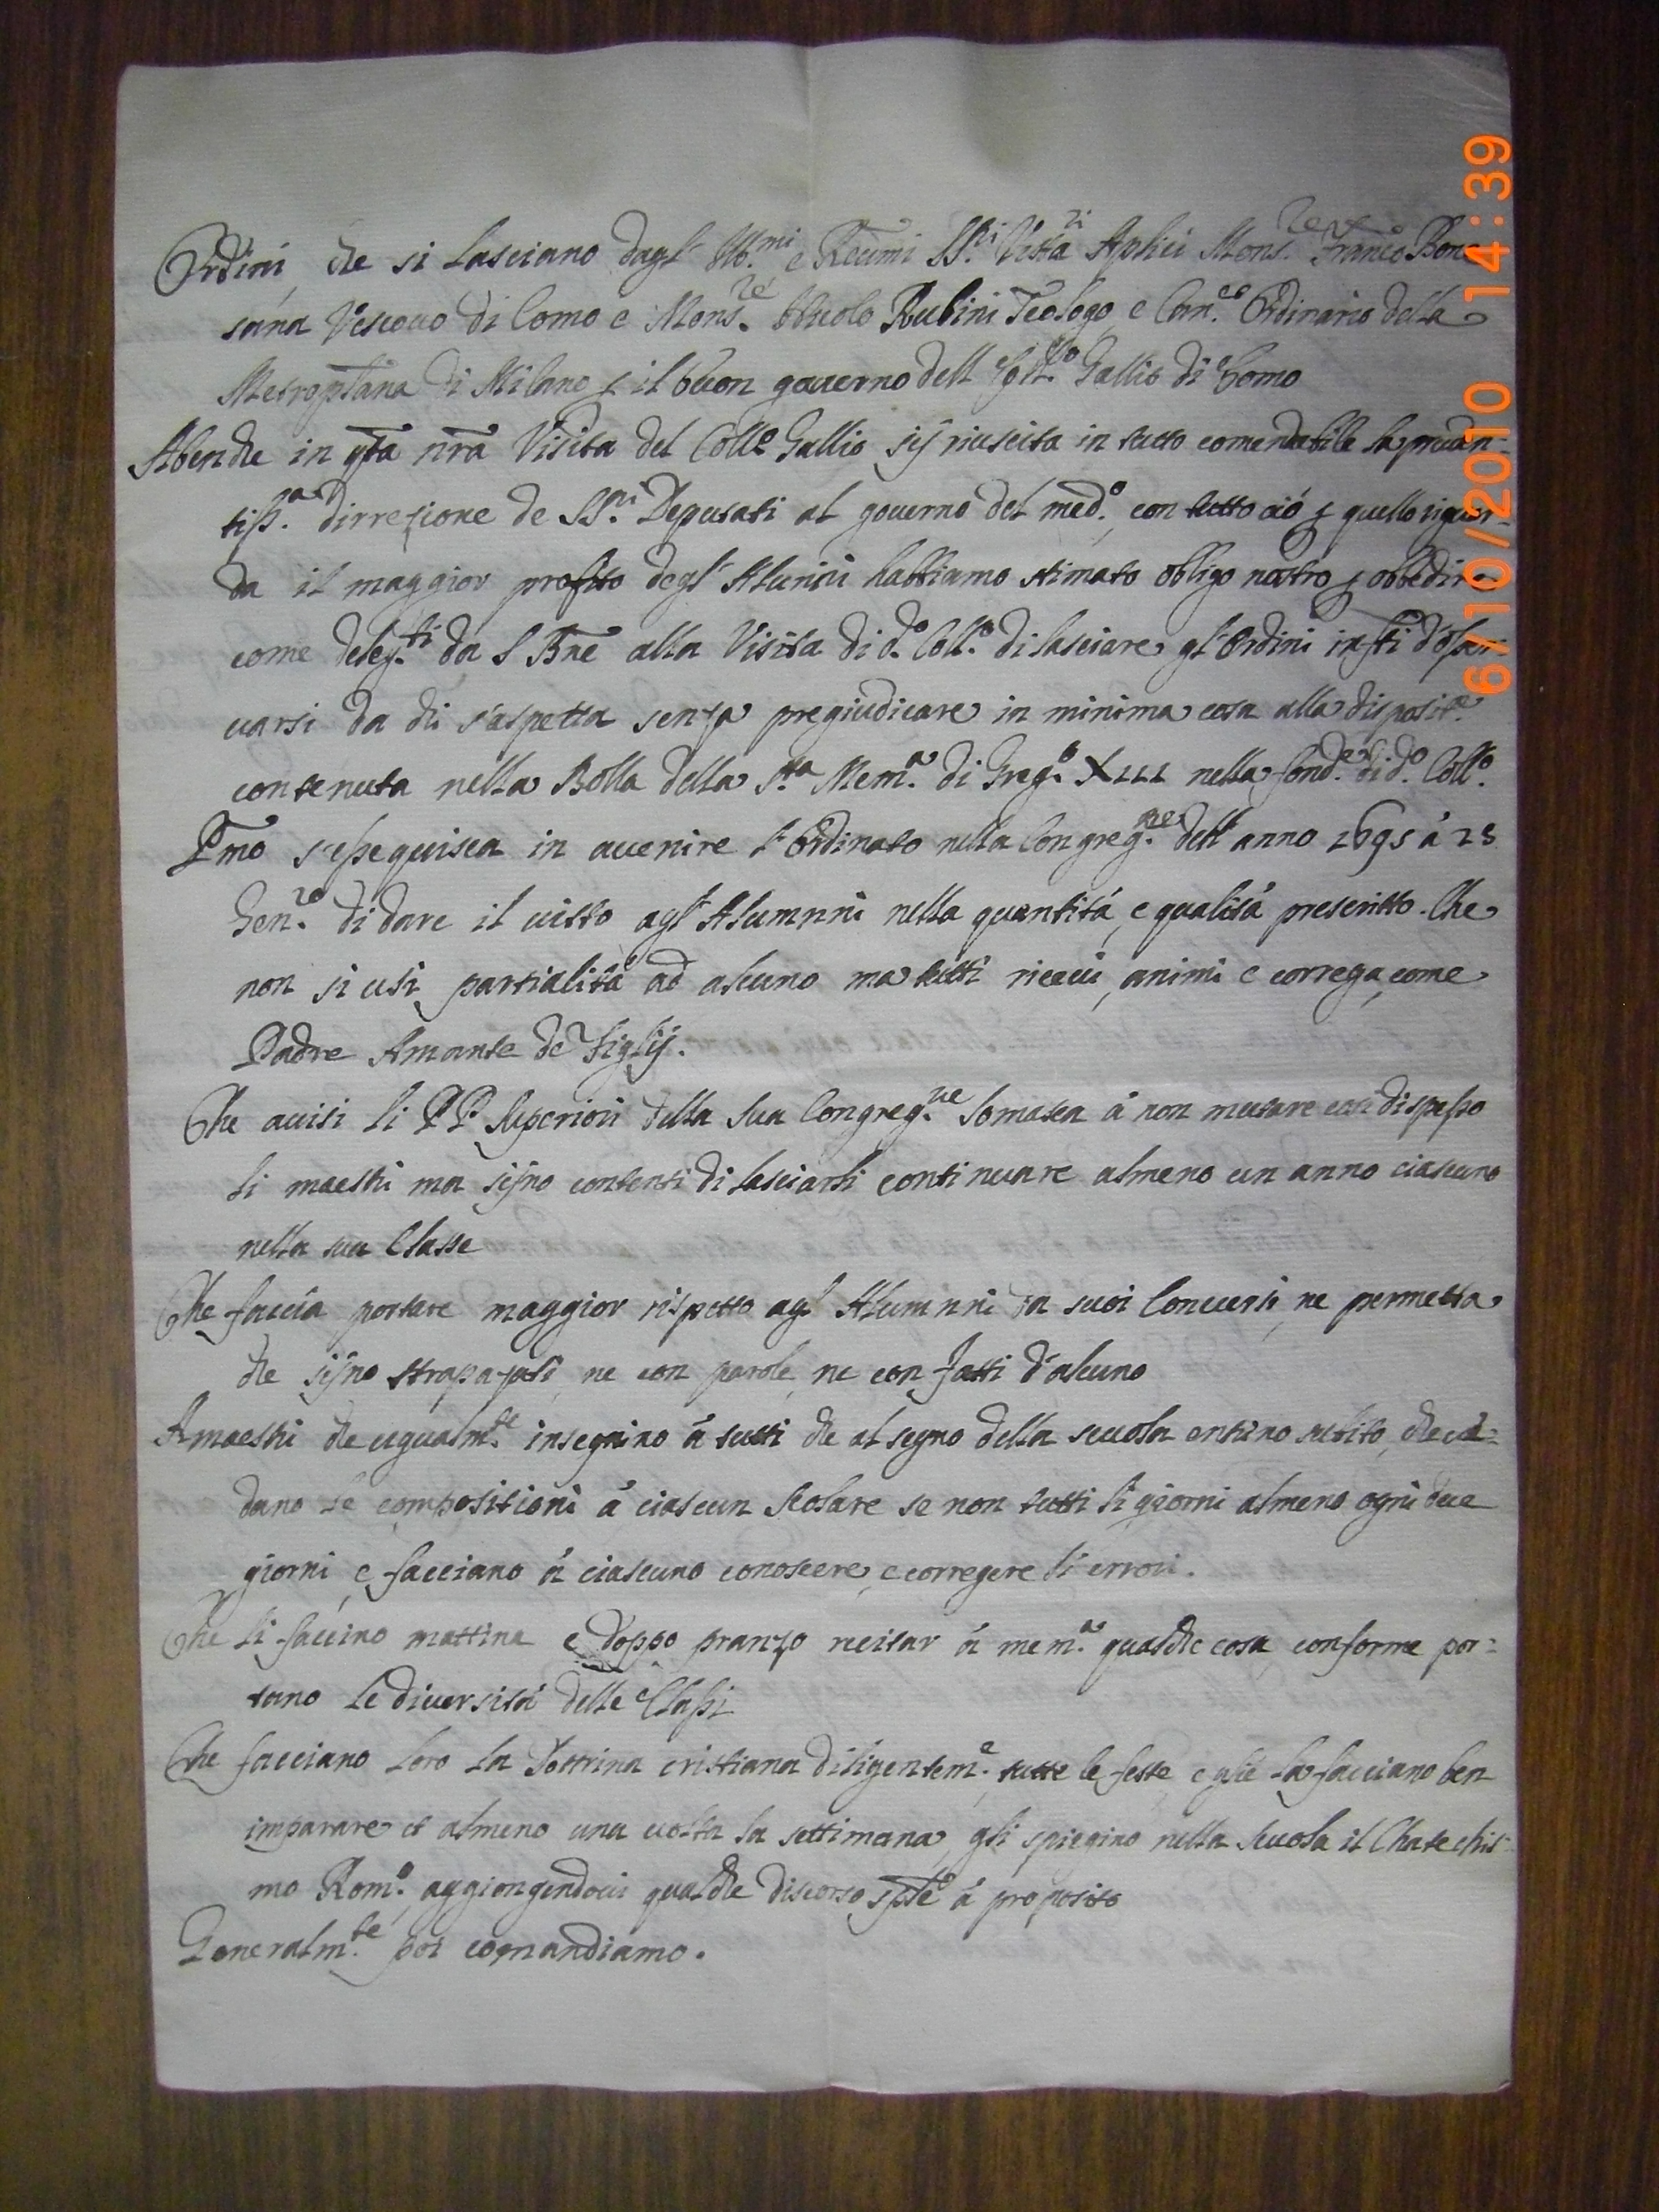 Ordini, che si lasciano dagl' Ill.mi e Reũmi SS.ri Visita.ri Aplici Mons.re Franc.o Bone
sana Vescouo di Como e Mons.re Rubini Teologo, e Can.co Ordinario della
Metroplana di Milano p il buon gouerno dell Coll.o Gallio di Como
Abenche in q̃ta nr̃a Visita del Coll.o Gallio sij riuscita in tutto comendabile la pruden-
tiss.a dirrezione de SS.ri Deputati al gouerno del med.o, con tutto ció p quello riguar-
da il maggior profitto degl' Alunni habbiamo stimato obligo nostro p obbedire
come deleg.ti da S Bne alla Visita di d.o Coll.o di lasciare gl' Ordini infr̃ti d'osser-
uarsi da chi s'aspetta senza pregiudicare in minima cosa alla disposit.e
contenuta nella Bolla della S.ta Mem.a di Greg.o XIII nella fond.e di d.o Coll.o
Pmo s'essequisca in auenire l'Ordinato nella Congreg.ne dell' anno 1695 à 28
Gen.ro di dare il uitto agl' Alumnni nella quantitá, e qualitá prescritto. Che
non si usi partialitá ad alcuno ma tutti riceui, animi e correga, come
Padre Amante de figlij.
Che auisi li PP. Superiori della sua Congreg.ne Somasca á non mutare cosi dispesso
li maestri ma sijno contenti di lasciarli continuare almeno un anno ciascuno
nella sua Classe
Che faccia portare maggior rispetto agl' Alumnni da suoi Conuersi, ne permetta
che sijno strapazati, ne con parole, ne con fatti d'alcuno
A maestri che ugualm.te insegnino á tutti che al segno della scuola entrino subito, che ue-
dano le compositioni á ciascun scolare se non tutti li giorni almeno ogni due
giorni, e facciano á ciascuno conoscere, e corregere li errori.
Che li faccino mattina e doppo pranzo recitar á mem.a qualche cosa conforme por-
tano le diuersitá delle Classi
Che facciano loro la Dottrina cristiana diligentem.e tutte le feste, e glie la facciano ben
imparare et almeno una uolta la settimana, gli spiegino nella scuola il Chatechis-
mo Rom.o, aggiongendoui qualche discorso sp̃le á proposito
Generalm.te poi comandiamo.
6/10/2010 14:39